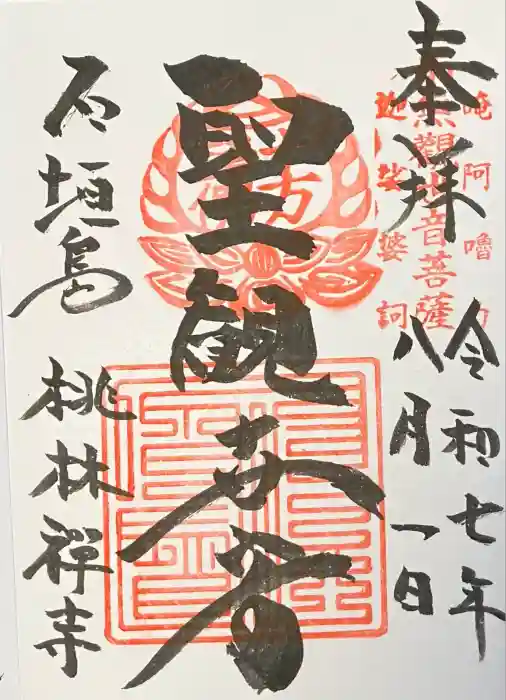 奉拝
令和七年
八月一日
唵阿嚕
南無觀世音菩薩
迦娑婆訶
聖観世音
石垣島
桃林禅寺